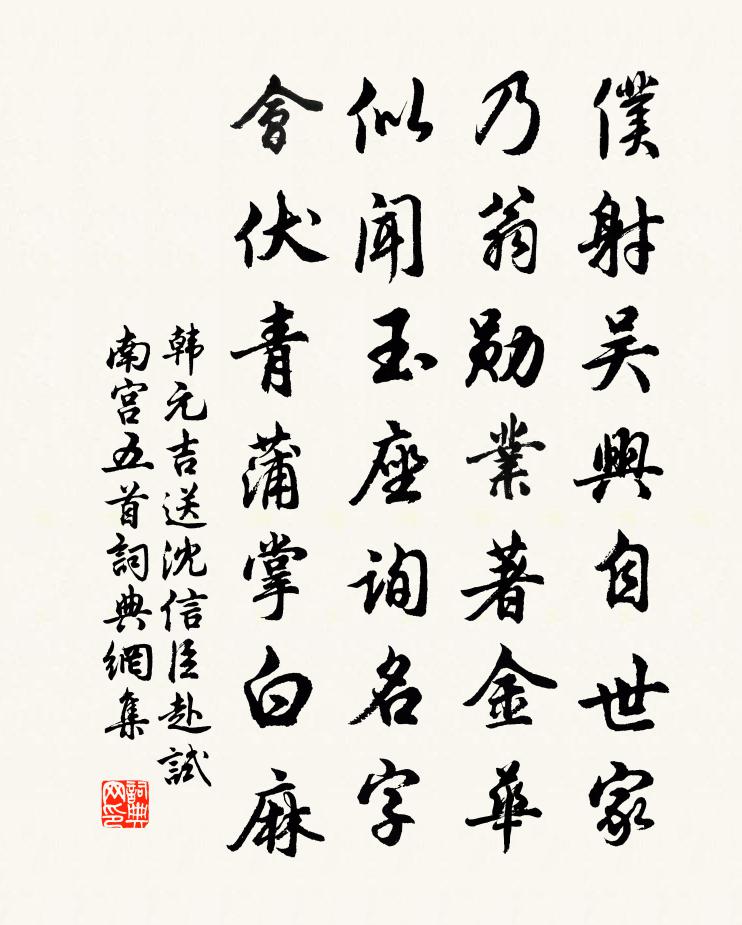 僕射吴興自世家
乃翁勛業著金華
似闻玉座询名字
會伏青蒲掌白麻
韩元吉送沈信臣赴試
南宫五首詞典網集
詞典网印